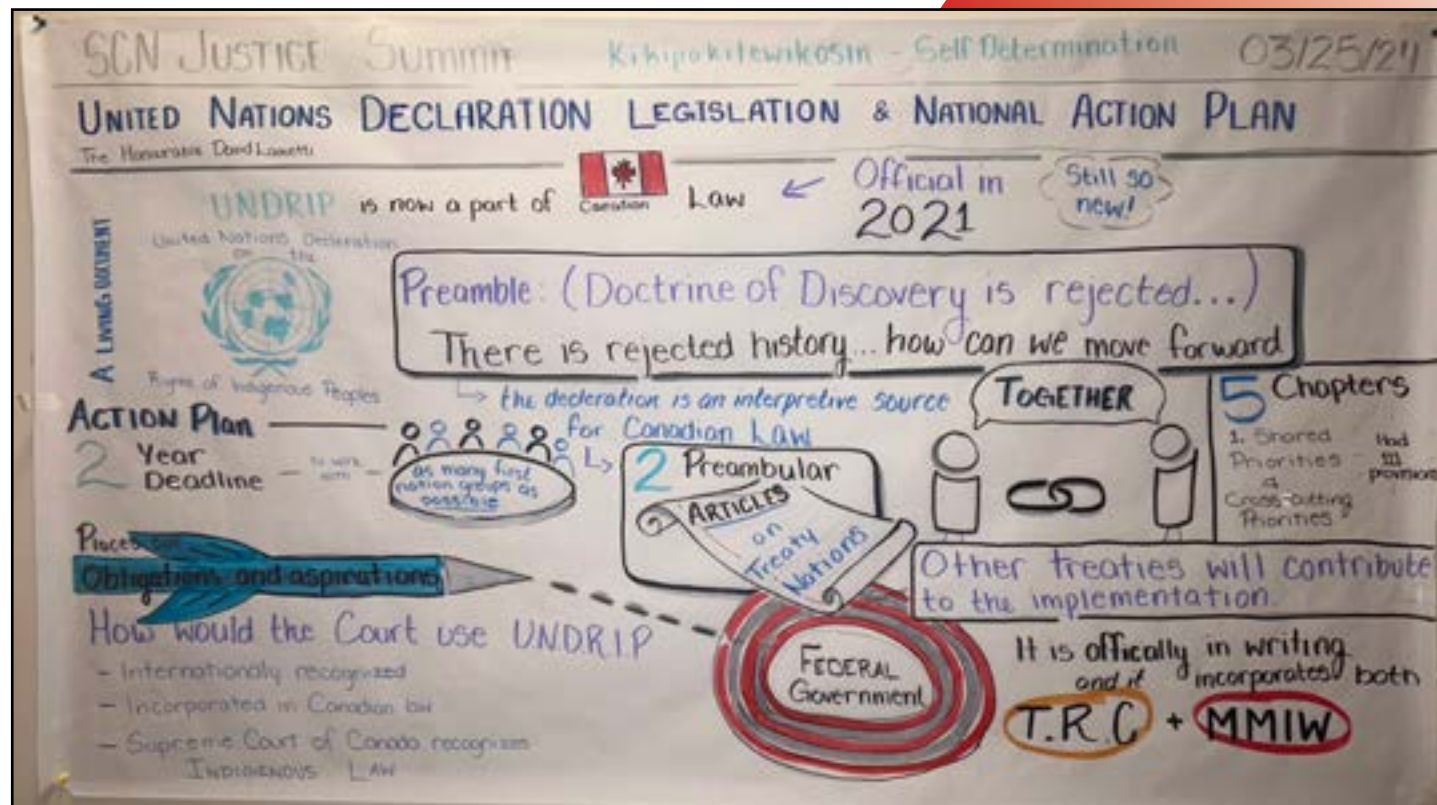 SCN JUSTICE Summit
Kihipokitewikosin - Self Determination
03/25/24
UNITED NATIONS DECLARATION LEGISLATION & NATIONAL ACTION PLAN
The Honourable David Lametti
UNDRIP is now a part of Canadian Law
Official in
2021
Still so
new!
A LIVING DOCUMENT
United Nations Declaration
on the
Rights of Indigenous Peoples
Preamble: (Doctrine of Discovery is rejected...)
There is rejected history... how can we move forward
TOGETHER
the decleration is an interpretive source
for Canadian Law
5 Chapters
1. Shared
Priorities
Cross-cutting
Priorities
Had
provisions
ACTION Plan
2 Year
Deadline
to work
with
as many first
nation groups as
possible
2 Preambular
ARTICLES
on
Treaty
Nations
Obligations and aspirations
Other treaties will contribute
to the implementation.
How would the Court use UNDRIP
- Internationally recognized
- Incorporated in Canadian law
- Supreme Court of Canada recognizes
INDIGENOUS LAW
FEDERAL
Government
It is offically in writing
and it incorporates both
T.R.C + MMIW